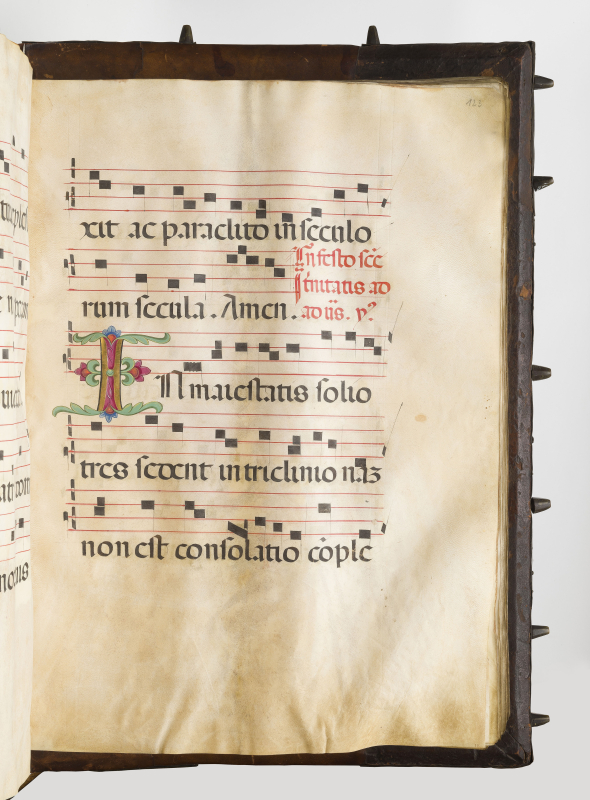 123
xit ac paraclito in seculo
In festo scē
rum secula. Amen. trinitatis ad
ad
IN maiestatis solio
tres sedent in triclinio nā
non est consolatio cōple